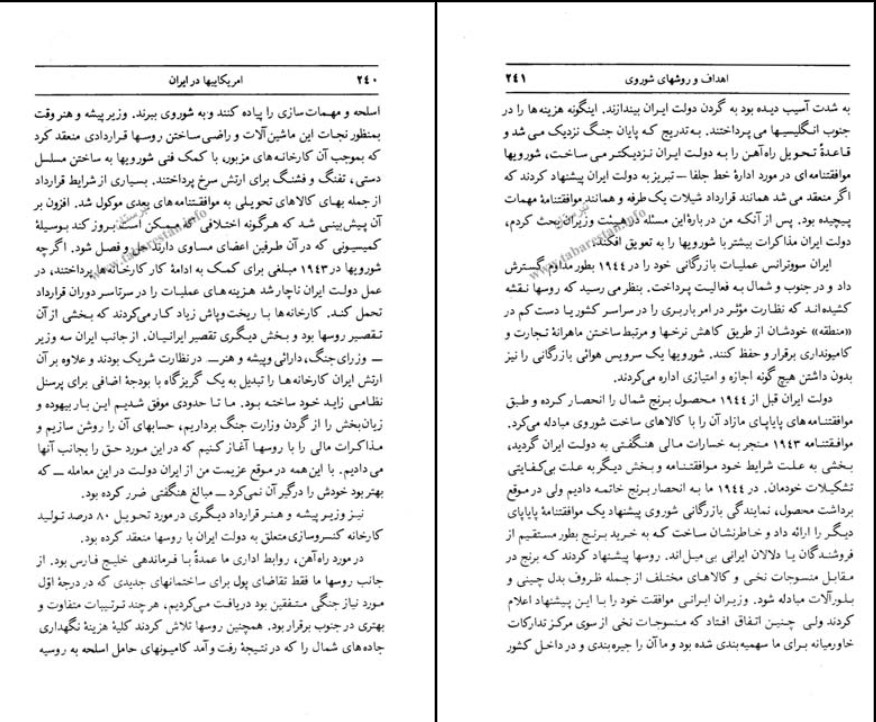 ۲۴۰ امریکاییها در ایران
اسلحه و مهمات‌سازی را پیاده کنند و به شوروی ببرند. وزیر پیشه و هنر وقت
بمنظور نجات این ماشین‌آلات و راضی ساختن روسها قراردادی منعقد کرد
که بموجب آن کارخانه‌های مزبور، با کمک فنی شورویها به ساختن مسلسل
دستی، تفنگ و فشنگ برای ارتش سرخ پرداختند. بسیاری از شرایط قرارداد
از جمله بهای کالاهای تحویلی به موافقتنامه‌های بعدی موکول شد. افزون بر
آن پیش‌بینی شد که هرگونه اختلافی که ممکن است بروز کند بوسیلهٔ
کمیسیونی که در آن طرفین اعضای مساوی دارند حل و فصل شود. اگر چه
شورویها در ۱۹۴۳ مبلغی برای کمک به ادامهٔ کار کارخانه‌ها پرداختند، در
عمل دولت ایران ناچار شد هزینه‌های عملیات را در سرتاسر دوران قرارداد
تحمل کند. کارخانه‌ها با ریخت‌وپاش زیاد کار می‌کردند که بخشی از آن
تقصیر روسها بود و بخش دیگری تقصیر ایرانیان. از جانب ایران سه وزیر
ـ وزرای جنگ، دارائی و پیشه و هنر ـ در نظارت شریک بودند و علاوه بر آن
ارتش ایران کارخانه‌ها را تبدیل به یک گریزگاه با بودجهٔ اضافی برای پرسنل
نظامی زاید خود ساخته بود. ما تا حدودی موفق شدیم این بار بیهوده و
زیان‌بخش را از گردن وزارت جنگ برداریم، حسابهای آن را روشن سازیم و
مذاکرات مالی را با روسها آغاز کنیم که در این مورد حق را بجانب آنها
می‌دادیم. با این همه در موقع عزیمت من از ایران دولت در این معامله ـ که
بهتر بود خودش را درگیر آن نمی‌کرد ـ مبالغ هنگفتی ضرر کرده بود.
نیز وزیر پیشه و هنر قرارداد دیگری در مورد تحویل ۸۰ درصد تولید
کارخانه کنسروسازی متعلق به دولت ایران با روسها منعقد کرده بود.
در مورد راه‌آهن، روابط اداری ما عمدةً با فرماندهی خلیج فارس بود. از
جانب روسها ما فقط تقاضای پول برای ساختمانهای جدیدی که در درجهٔ اوّل
مورد نیاز جنگی متفقین بود دریافت می‌کردیم، هر چند ترتیبات متفاوت و
بهتری در جنوب برقرار بود. همچنین روسها تلاش کردند کلیهٔ هزینهٔ نگهداری
جاده‌های شمال را که در نتیجهٔ رفت و آمد کامیونهای حامل اسلحه به روسیه
اهداف و روشهای شوروی ۲۴۱
به شدت آسیب دیده بود به گردن دولت ایران بیندازند. اینگونه هزینه‌ها را در
جنوب انگلیسیها می‌پرداختند. به‌تدریج که پایان جنگ نزدیک می‌شد و
قاعدهٔ تحویل راه‌آهن را به دولت ایران نزدیکتر می‌ساخت، شورویها
موافقتنامه‌ای در مورد ادارهٔ خط جلفا – تبریز به دولت ایران پیشنهاد کردند که
اگر منعقد می‌شد همانند قرارداد شیلات یک‌طرفه و همانند موافقتنامهٔ مهمات
پیچیده بود. پس از آنکه من در بارهٔ این مسئله در هیئت وزیران بحث کردم،
دولت ایران مذاکرات بیشتر با شورویها را به تعویق افکند.
ایران سووترانس عملیات بازرگانی خود را در ۱۹۴۴ بطور مداوم گسترش
داد و در جنوب و شمال به فعالیت پرداخت. بنظر می‌رسید که روسها نقشه
کشیده‌اند که نظارت مؤثر در امر باربری را در سراسر کشور یا دست کم در
«منطقه» خودشان از طریق کاهش نرخها و مرتبط ساختن ماهرانهٔ تجارت و
کامیونداری برقرار و حفظ کنند. شورویها یک سرویس هوائی بازرگانی را نیز
بدون داشتن هیچ گونه اجازه و امتیازی اداره می‌کردند.
دولت ایران قبل از ۱۹۴۴ محصول برنج شمال را انحصار کرده و طبق
موافقتنامه‌های پایاپای مازاد آن را با کالاهای ساخت شوروی مبادله می‌کرد.
موافقتنامه ۱۹۴۳ منجر به خسارات مالی هنگفتی به دولت ایران گردید،
بخشی به علت شرایط خود موافقتنامه و بخش دیگر به علت بی‌کفایتی
تشکیلات خودمان. در ۱۹۴۴ ما به انحصار برنج خاتمه دادیم ولی در موقع
برداشت محصول، نمایندگی بازرگانی شوروی پیشنهاد یک موافقتنامهٔ پایاپای
دیگر را ارائه داد و خاطرنشان ساخت که به خرید برنج بطور مستقیم از
فروشندگان یا دلالان ایرانی بی‌میل‌اند. روسها پیشنهاد کردند که برنج در
مقابل منسوجات نخی و کالاهای مختلف از جمله ظروف بدل چینی و
بلورآلات مبادله شود. وزیران ایرانی موافقت خود را با این پیشنهاد اعلام
کردند ولی چنین اتفاق افتاد که منسوجات نخی از سوی مرکز تدارکات
خاورمیانه برای ما سهمیه‌بندی شده بود و ما آن را جیره‌بندی و در داخل کشور
www.tabarestan.info
www.tabarestan.info